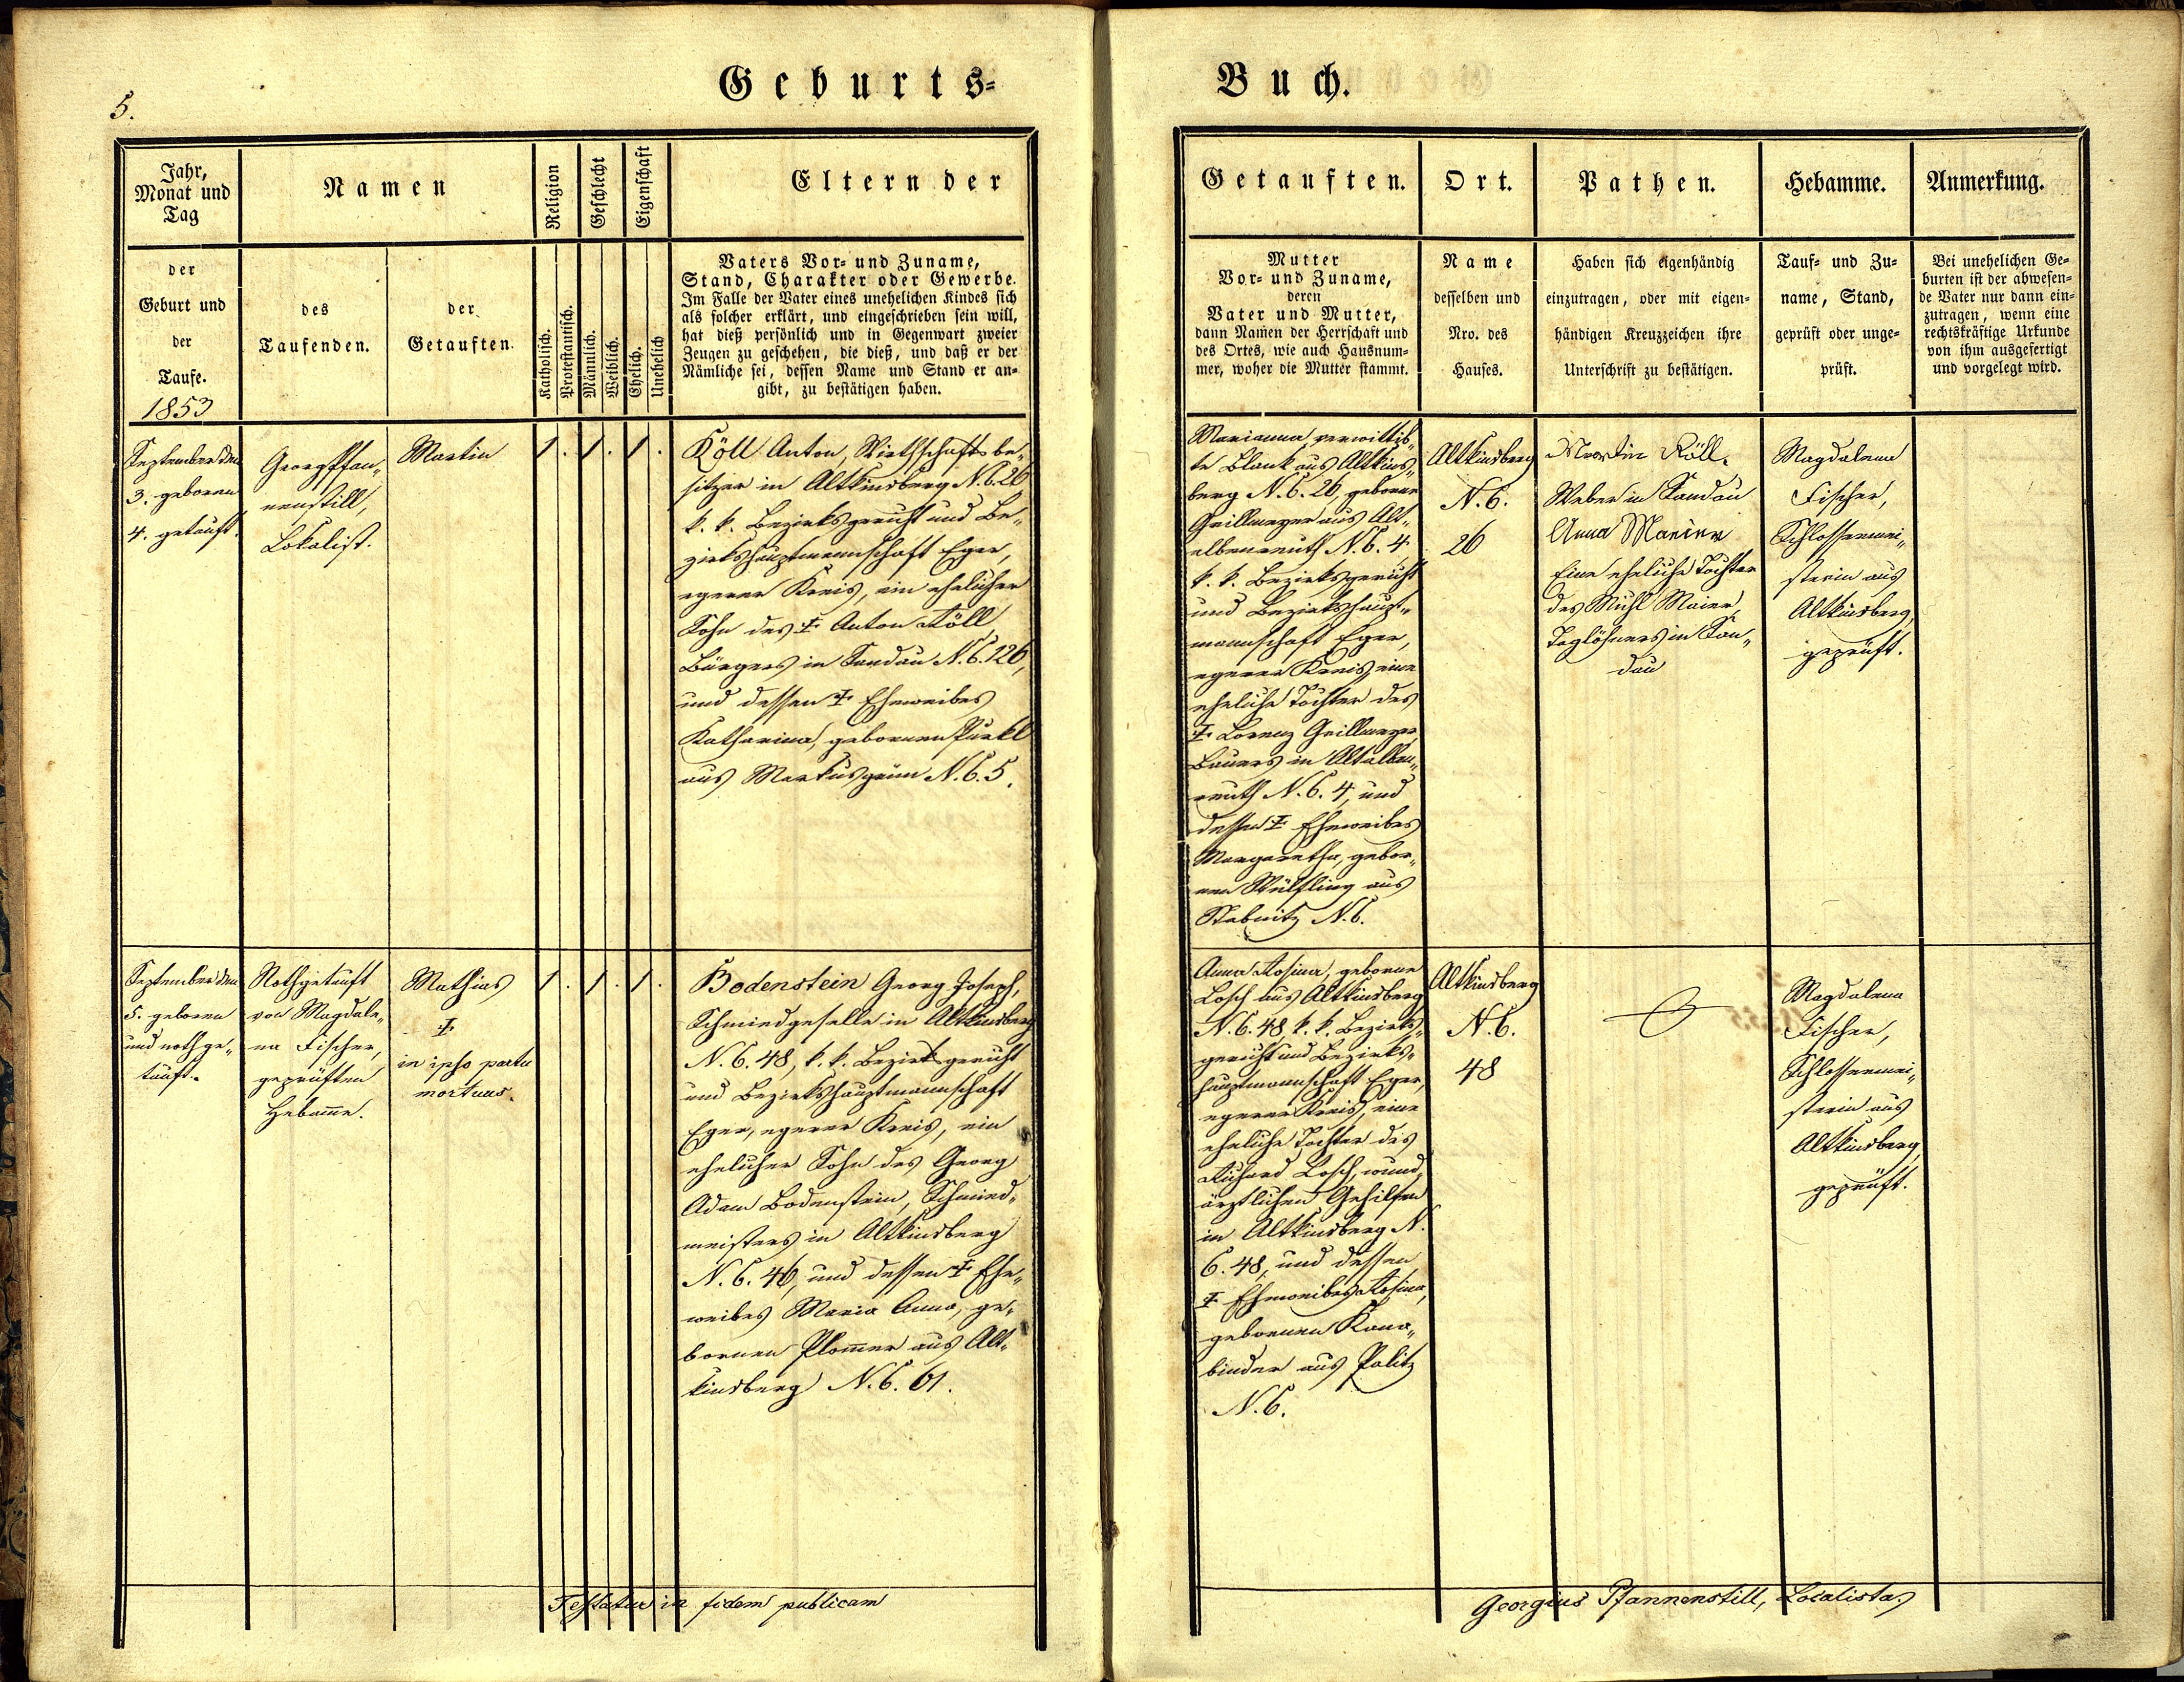 5.
Geburts=
Buch.
Jahr,
Monat und
Tag
der
Geburt und
der
Taufe.
1853
Namen
des
Taufenden.
der
Getauften.
Religion
Katholisch.
Protestantisch.
Geschlecht
Männlich.
Weiblich.
Eigenschaft
Ehelich.
Unehelich
Eltern der
Vaters Vor= und Zuname,
Stand, Charakter oder Gewerbe.
Im Falle der Vater eines unehelichen Kindes sich
als solcher erklärt, und eingeschrieben sein will,
hat dieß persönlich und in Gegenwart zweier
Zeugen zu geschehen, die dieß, und daß er der
Nämliche sei, dessen Name und Stand er an=
gibt, zu bestätigen haben.
Getauften.
Mutter
Vor= und Zuname,
deren
Vater und Mutter,
dann Namen der Herrschaft und
des Ortes, wie auch Hausnum=
mer, woher die Mutter stammt.
Ort.
Name
desselben und
Nro. des
Hauses.
Pathen.
Haben sich eigenhändig
einzutragen, oder mit eigen=
händigen Kreuzzeichen ihre
Unterschrift zu bestätigen.
Hebamme.
Tauf= und Zu=
name, Stand,
geprüft oder unge=
prüft.
Anmerkung.
Bei unehelichen Ge=
burten ist der abwesen=
de Vater nur dann ein=
zutragen, wenn eine
rechtskräftige Urkunde
von ihm ausgefertigt
und vorgelegt wird.
September den
3. geboren
4. getauft.
Georg Pfan„
nenstill,
Lokalist.
Martin
1. 1. 1.
Köll Anton, Wirthschaftsbe„
sitzer in Altkinsberg N.C. 26
k. k. Bezirksgericht und Be„
zirkshauptmannschaft Eger,
egerer Kreis, ein ehelicher
Sohn des ‡ Anton Köll
Bürgers in Sandau N.C. 126,
und dessen ‡ Eheweibes
Katharina, gebornen Purkl
aus Markusgrün N.C. 5.
Marianna, verwittib„
te Blank aus Altkins„
berg N.C. 26, geborne
Grillmeyer aus Alt„
albenreuth N.C. 4
k. k. Bezirksgericht
und Bezirkshaupt„
mannschaft Eger,
egerer Kreis, eine
eheliche Tochter des
‡ Lorenz Grillmeyer,
Bauers in Altalben„
reuth N.C. 4, und
dessen ‡ Eheweibes
Margaretha, gebor„
nen Wülfling aus
Stabnitz N.C.
Altkinsberg
N.C.
26
Martin Köll.
Weber in Sandau
Anna Marier
Eine eheliche Tochter
des Michl Maier,
Taglöhners in San„
dau
Magdalena
Fischer,
Schlossermei„
sterin aus
Altkinsberg,
geprüft.
September den
5. geboren
und nothge„
tauft.
Nothgetauft
von Magdale„
na Fischer,
geprüften
Hebamme.
Mathias
‡
in ipso partu
mortuus.
1. 1. 1.
Bodenstein Georg Joseph,
Schmiedgeselle in Altkinsberg
N.C. 48, k. k. Bezirksgericht
und Bezirkshauptmannschaft
Eger, egerer Kreis, ein
ehelicher Sohn des Georg
Adam Bodenstein, Schmied„
meisters in Altkinsberg
N.C. 46, und dessen ‡ Ehe„
weibes Maria Anna, ge„
bornen Plommer aus Alt„
kinsberg N.C. 61.
Anna Rosina, geborne
Losch aus Altkinsberg
N.C. 48, k. k. Bezirks„
gericht und Bezirks„
hauptmannschaft Eger,
egerer Kreis, eine
eheliche Tochter des
Richard Losch, wund„
ärztlichen Gehilfen
in Altkinsberg N.
C. 48, und dessen
‡ Eheweibes Rosina,
gebornen
binder aus Palitz
N.C.
Altkinsberg
N.C.
48
Magdalena
Fischer,
Schlossermei„
sterin aus
Altkinsberg,
geprüft.
Testatur in fidem publicam
Georgius Pfannenstill, Localista